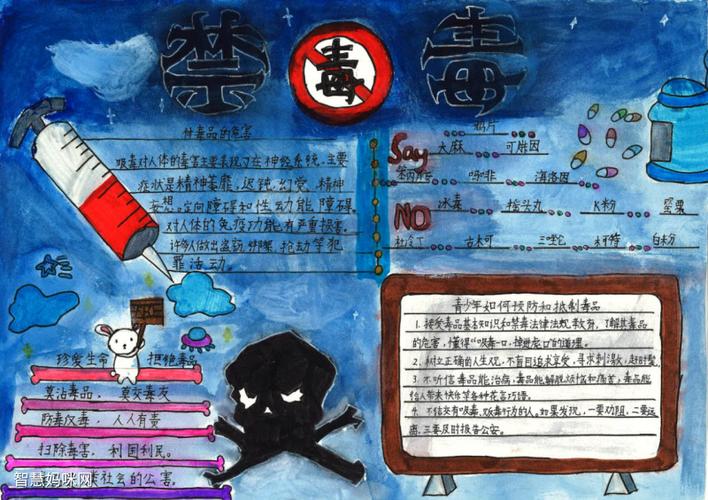 禁毒
毒
什毒品的危害
吸毒对人体的毒害主要表现了在神经系统,主要
症状是精神萎靡,迟钝,幻觉,精神
妄想,定向障碍知性动能障碍。
对人体的免疫功能有严重损害。
许多人做出盗窃、绑票、抢劫等犯
罪活动。
Say
NO
鸦片
大麻 可胜因
吗啡 海洛因
冰毒 摇头丸 K粉 罂粟
杜冷丁 古柯 三唑仑 白粉
珍爱生命 拒绝毒品
莫沾毒品, 莫交毒友
防毒反毒, 人人有责
扫除毒害, 利国利民。
社会的公害。
青少年如何预防和抵制毒品
1、接受毒品基本知识和禁毒法律法规教育,了解其毒品
的危害,懂得“吸毒一口,掉进虎口”的道理。
2、树立正确的人生观,不盲目追求享受,寻求刺激,赶时髦。
3、不听信毒品能治病,毒品能解脱烦恼和痛苦,毒品能
给人带来快乐等各种花言巧语。
4、不结交有吸毒、贩毒行为的人。如果发现,一要劝阻,二要远
离,三要及时报告公安。
智慧妈咪网